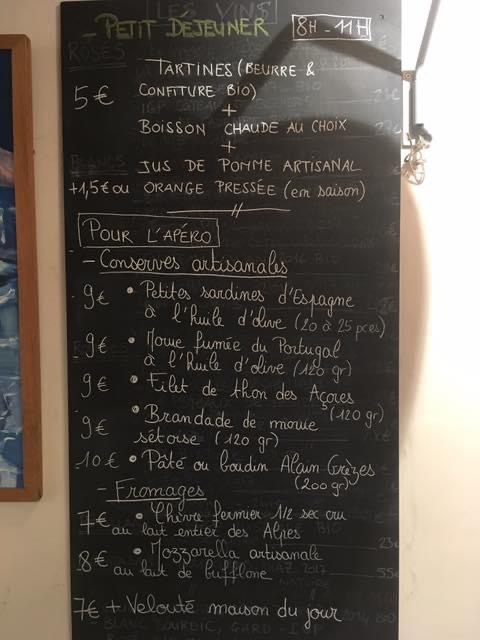 LES VINS
- PETIT DEJEUNER 8H - 11H
TARTINES (BEURRE &
5€ CONFITURE BIO)
+
BOISSON CHAUDE AU CHOIX
+
JUS DE POMME ARTISANAL
+1,5€ ou ORANGE PRESSÉE (en saison)
POUR L'APÉRO
- Conserves artisanales
9€ • Petites sardines d'Espagne
à l'huile d'olive (20 à 25 pces)
9€ • Morue fumée du Portugal
à l'huile d'olive (120 gr)
9€ • Filet de thon des Açores
(120 gr)
9€ • Brandade de morue
sétoise (120 gr)
10€ • Pâté ou boudin Alain Grèzes
(200 gr)
- Fromages
7€ • Chèvre fermier 1/2 sec cru
au lait entier des Alpes
8€ • Mozzarella artisanale
au lait de bufflone
7€ + Velouté maison du jour